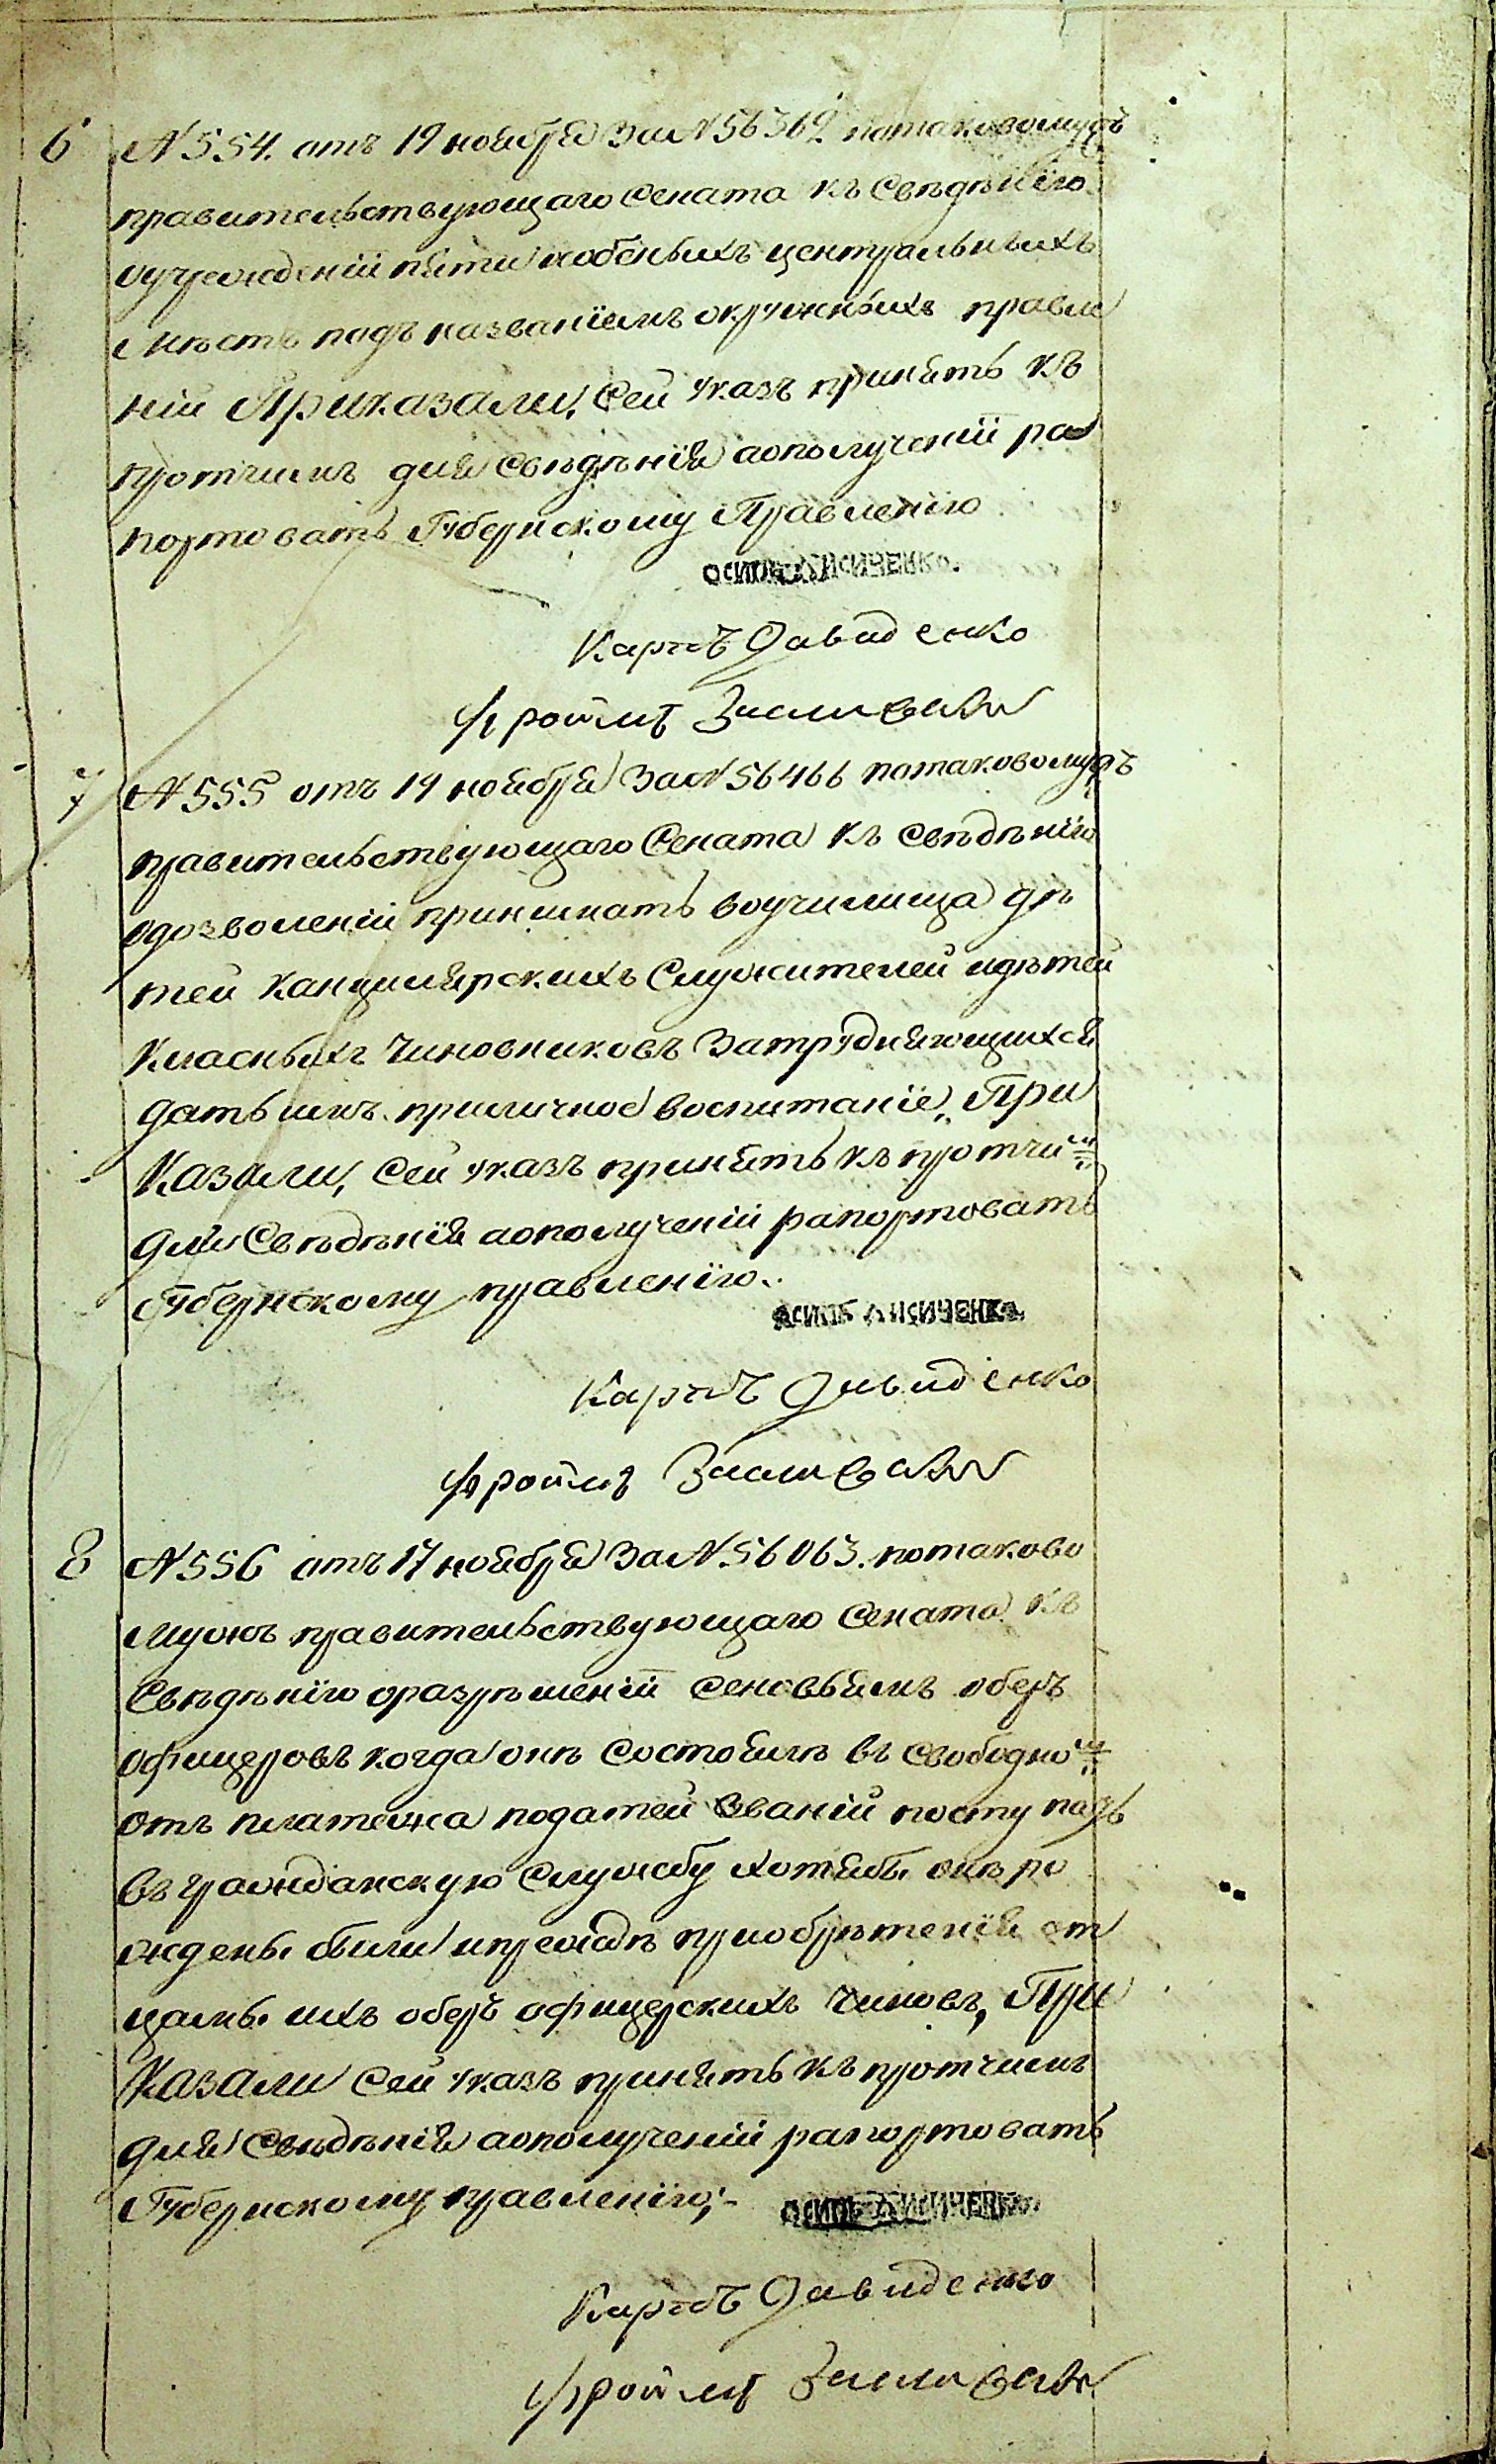 6 № 554. отъ 19 ноября За № 56362 потаковомуж
правительствующаго Сената къ Сведѣнію
оучрежденіи пяти особеныхъ центральныхъ
мѣстъ подъ названіемъ окружныхъ правле
ній Приказали, Сей указъ принять къ
протчимъ для Сведѣнія аополученіи ра
портовать Губернскому Правленію
ОСИПЪ ЛИСИЧЕНКО.
Карпъ Давиденко
7 № 555 отъ 19 ноября За № 56466 потаковомуж
правительствующаго Сената къ сведѣнію
одозволеніи принимать воучилища дѣ
тей канцилярскихъ Служителей идѣтей
Класныхъ Чиновниковъ Затрудняющихся
дать имъ приличное воспитаніе, При
Казали, Сей указъ принять къ протчи
для Сведѣнія аополученіи рапортовать
Губернскому правленію.
ОСИПЪ ЛИСИЧЕНКО.
Карпъ Давиденко
8 № 556 отъ 17 ноября За № 56063. потаково
мужъ правительствующаго Сената къ
Сведѣнію оразрѣшеніи сеновьямъ оберъ
офицеровъ когда онѣ Состояли въ свободно
отъ платежа податей званіи посту пать
въ гражданскую Службу хотябы онѣ ро
ждены были ипрежде приобрѣтенія от
цамы ихъ оберъ офицерскихъ чиновъ, При
Казали Сей указъ принять къ протчимъ
для Сведѣнія аополученіи рапортовать
Губернскому правленію;-
ОСИПЪ ЛИСИЧЕНКО.
Карпъ Давиденко